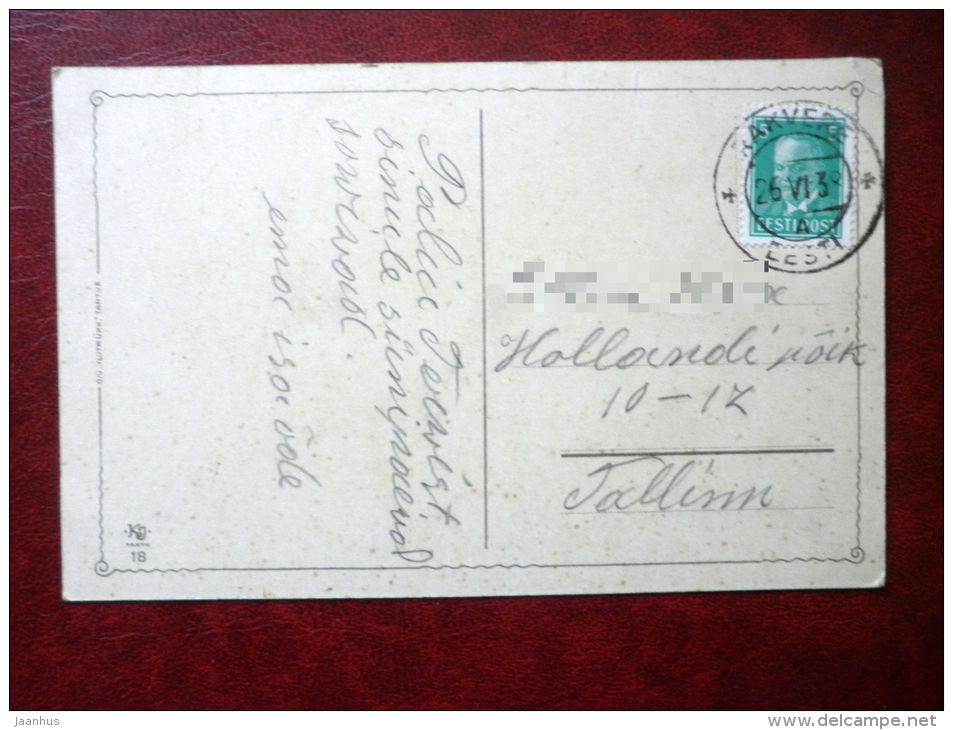 Palju Tervist
sinule sünnipäevad
soovivad.
ema isa õde
RAKVERE
26 VI 3
A
EESTI
EESTI POST
Hollandi põik
10-12
Tallinn
KJ
TARTU
18
jaanhus
www.delcampe.net